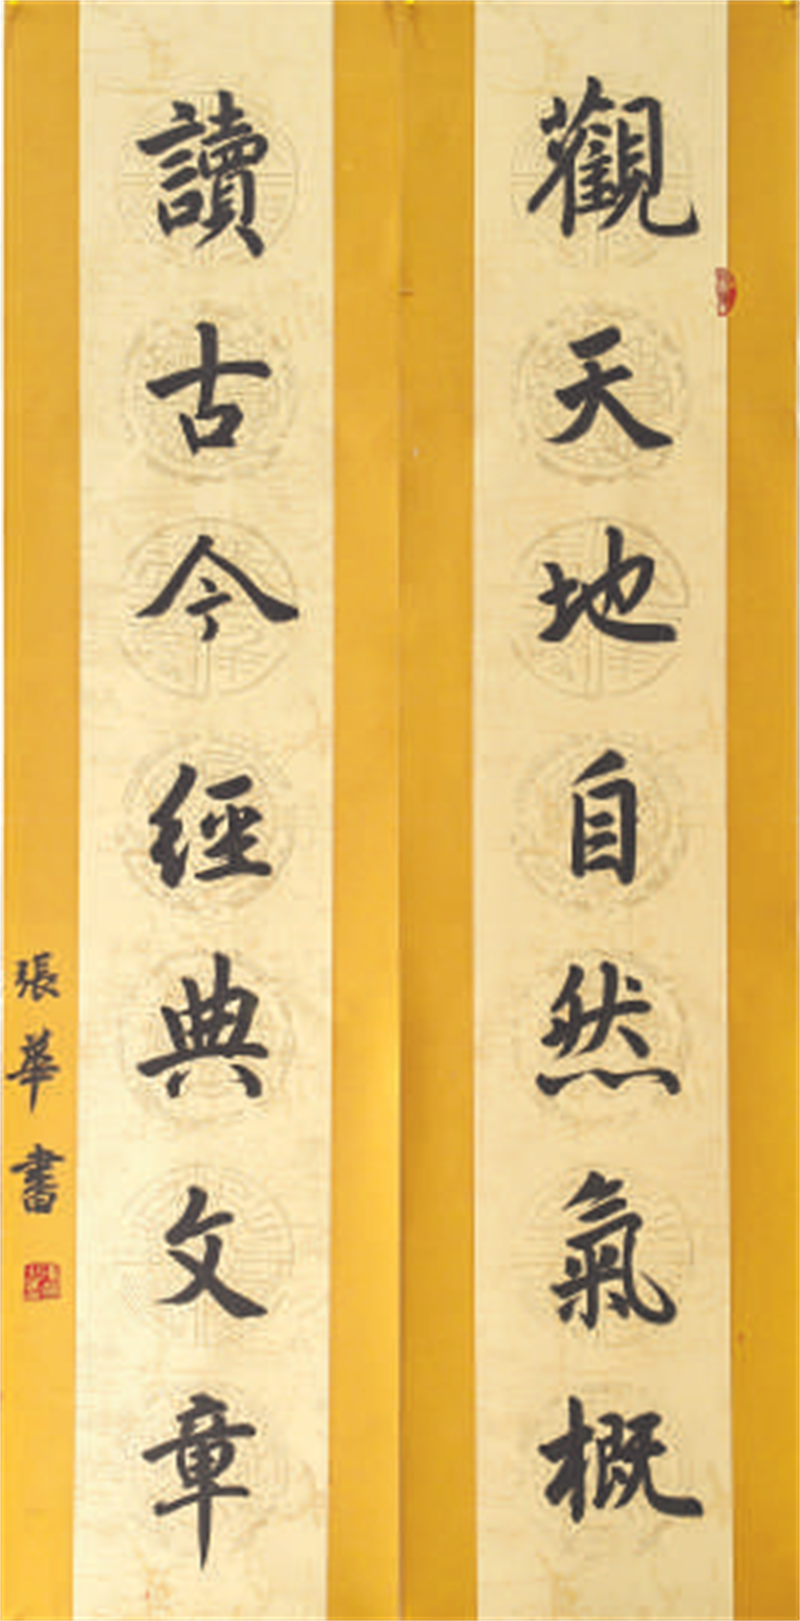 觀天地自然氣概
讀古今經典文章
張華書